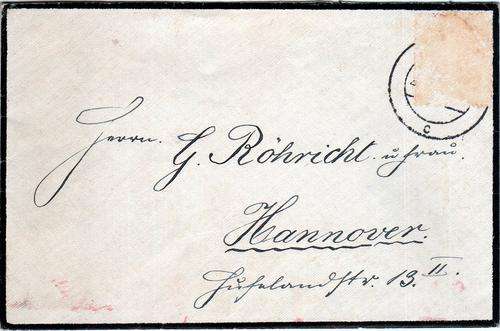 Herrn.
G. Röhricht u Frau.
Hannover.
Hufelandstr. 13 II.
c